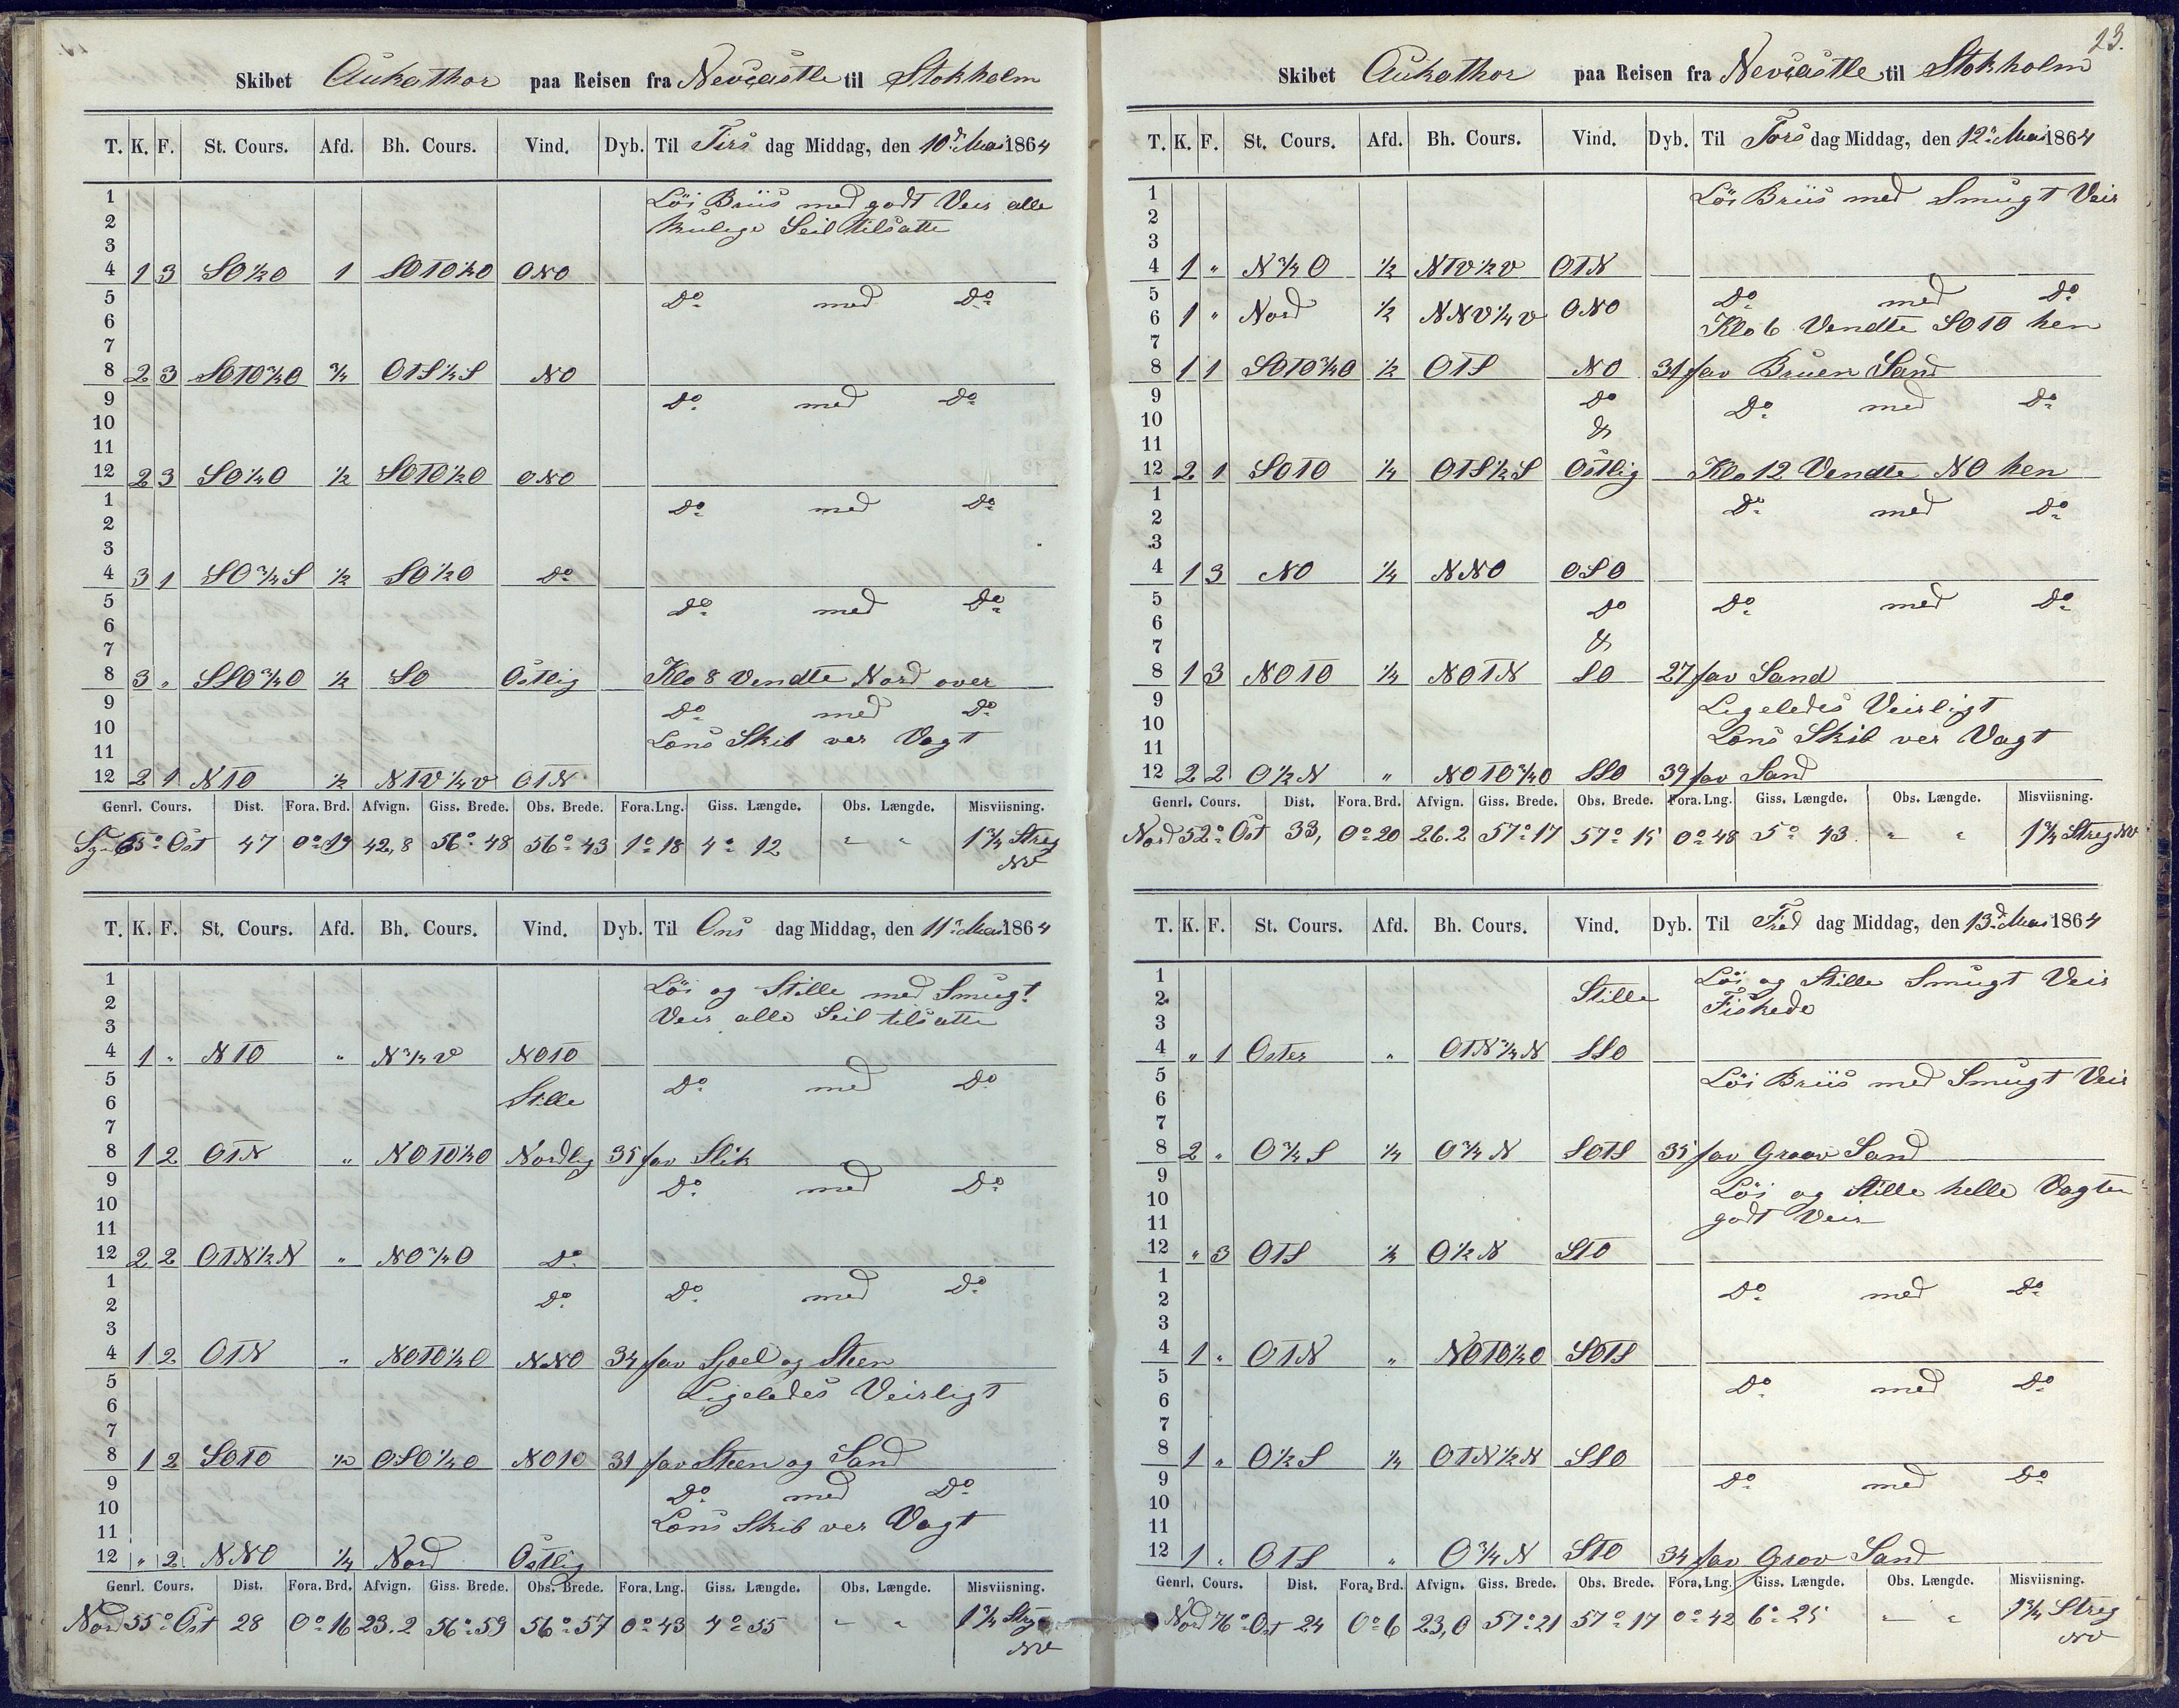 Skibet Aukathor paa Reisen fra Newcastle til Stokholm
T. K. F. St. Cours. Afd. Bh. Cours. Vind. Dyb. Til Tirs dag Middag, den 10de Mai 1864
1 Löi Briis med godt Veir alle
2 kulige Seil tilsatte
3
4 1 3 SO½O 1 SOTO½O ONO
5 Do med Do
6
7
8 2 3 SOTO¾O ¾ OTS¼S NO
9 Do med Do
10
11
12 2 3 SO¼O ½ SOTO½O ONO
1 Do med Do
2
3
4 3 1 SO¾S ½ SO½O Do
5 Do med Do
6
7
8 3 " SSO¾O ½ SO Östlig Klo 8 Vendte Nord over
9 Do med Do
10 Lens Skib ver Vagt
11
12 2 1 NTO ½ NTV¼V OTN
Genrl. Cours. Dist. Fora. Brd. Afvign. Giss. Brede. Obs. Brede. Fora. Lng. Giss. Længde. Obs. Længde. Misviisning.
Syd 65° Ost 47 0°19 42,8 56°48 56°43 1°18 4°12 " " 1¾ Streg
NV
T. K. F. St. Cours. Afd. Bh. Cours. Vind. Dyb. Til Ons dag Middag, den 11te Mai 1864
1 Löi og Stille med Smugt
2 Veir alle Seil tilsatte
3
4 1 " NTO " N¾V NOTO
5 Stille Do med Do
6
7
8 1 2 OTN " NOTO½O Nordlig 35 fav Slik
9 Do med Do
10
11
12 2 2 OTN½N " NO¾O Do
1 Do Do med Do
2
3
4 1 2 OTN " NOTO¼O NNO 34 fav Sjoel og Steen
5 Ligeledes Veirligt
6
7
8 1 2 SOTO ½ OSO¼O NOTO 31 fav Steen og Sand
9 Do med Do
10 Lens Skib ver Vagt
11
12 " 2 NNO ¼ Nord Östlig
Genrl. Cours. Dist. Fora. Brd. Afvign. Giss. Brede. Obs. Brede. Fora. Lng. Giss. Længde. Obs. Længde. Misviisning.
Nord 55° Ost 28 0°16 23.2 56°59 56°57 0°43 4°55 " " 1¾ Streg
NV
23.
Skibet Aukathor paa Reisen fra Newcastle til Stokholm
T. K. F. St. Cours. Afd. Bh. Cours. Vind. Dyb. Til Tors dag Middag, den 12te Mai 1864
1 Löi Briis med Smugt Veir
2
3
4 1 " N¾O ½ NTV½V OTN
5 Do med Do
6 1 " Nord ½ NNV¼V ONO Klo 6 Vendte SOTO hen
7
8 1 1 SOTO¾O ½ OTS NO 31 fav Bruen Sand
9 Do Do med Do
10 &
11
12 2 1 SOTO ¼ OTS½S Östlig Klo 12 Vendte NO hen
1 Do med Do
2
3
4 1 3 NO ¼ NNO OSO
5 Do Do med Do
6
7 &
8 1 3 NOTO ¼ NOTN SO 27 fav Sand
9 Ligeledes Veirligt
10 Lens Skib ver Vagt
11
12 2 2 O½N " NOTO¾O SSO 39 fav Sand
Genrl. Cours. Dist. Fora. Brd. Afvign. Giss. Brede. Obs. Brede. Fora. Lng. Giss. Længde. Obs. Længde. Misviisning.
Nord 52° Ost 33, 0°20 26.2 57°17 57°15 0°48 5°43 " " 1¾ Streg NV
T. K. F. St. Cours. Afd. Bh. Cours. Vind. Dyb. Til Fred dag Middag, den 13de Mai 1864
1 Löi og Stille Smugt Veir
2 Stille Fiskede
3
4 " 1 Oster " OTN¾N SSO
5 Löi Briis med Smugt Veir
6
7
8 2 " O¾S ¼ O¾N SOTS 35 fav Graav Sand
9 Löi og Stille helle Vagten
10 godt Veir
11
12 " 3 OTS ¼ O½N STO
1 Do med Do
2
3
4 1 " OTN " NOTO¼O SOTS
5 Do med Do
6
7
8 1 " O½S ¼ OTN½N SSO
9 Do med Do
10
11
12 1 " OTS " O¾N STO 34 fav Grov Sand
Genrl. Cours. Dist. Fora. Brd. Afvign. Giss. Brede. Obs. Brede. Fora. Lng. Giss. Længde. Obs. Længde. Misviisning.
Nord 76° Ost 24 0°6 23,0 57°21 57°17 0°42 6°25 " " 1¾ Streg
NV